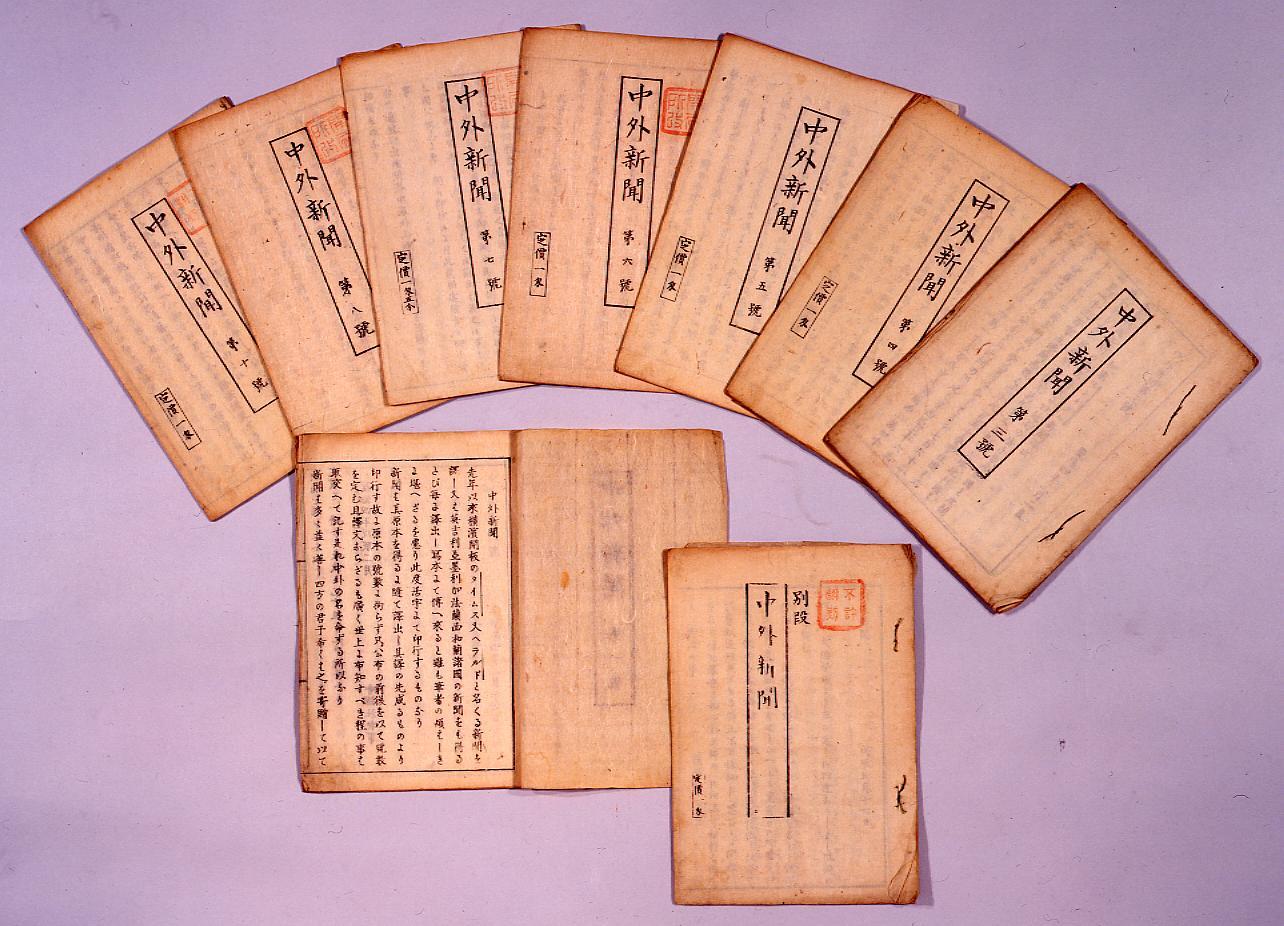 中外新聞 第十號
定價一匁
中外新聞 第八號
中外新聞 第七號
定價一匁五分
中外新聞 第六號
定價一匁
中外新聞 第五號
定價一匁
中外新聞 第四號
定價一匁
中外新聞 第三號
中外新聞
先年以來横濱開板のタイムス又ヘラルドと名くる新聞を
譯し又は英吉利亞墨利加法蘭西和蘭諸國の新聞をも得る
とひ毎に譯出し寫本にて傳へ來ると雖も筆者の煩はしき
に堪へざるを患り此度活字にて印行するものなり
新聞は其原本を得るに隨て譯出し其譯の先成るものより
印行す故に原本の號數に拘らず只公布の前後を以て號數
を定む且譯文のみならざるも廣く世上に布知すべき程の事は
取交へて記す是れ中外の名を命ずる所以なり
新聞は多々益々善し四方の君子希くは之を寄贈して以て
別段
中外新聞
不許翻刻
定價一匁